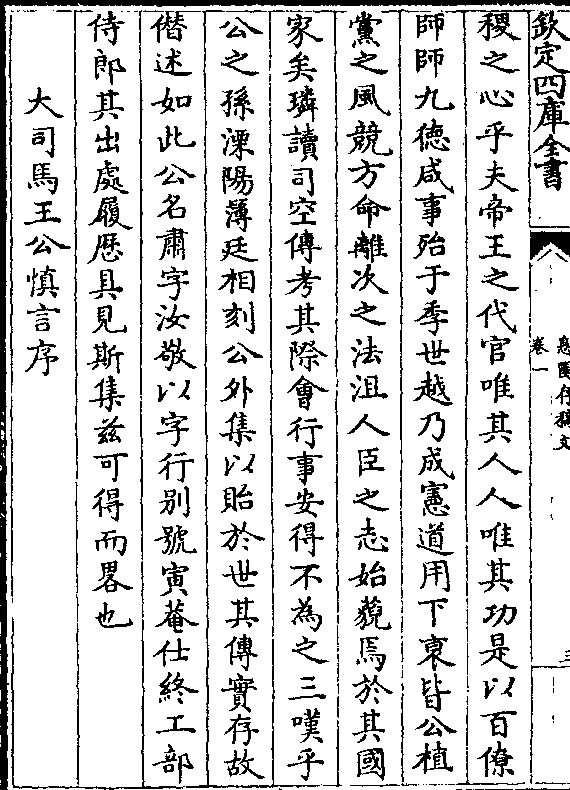 欽定四庫全書
息園存稿文
卷一
三
稷之心乎夫帝王之代官唯其人人唯其功是以百僚
師師九德咸事殆于季世越乃成憲道用下衰背公植
黨之風競方命離次之法沮人臣之志始藐焉於其國
家矣璘讀司空傳考其際會行事安得不為之三嘆乎
公之孫溧陽薄廷相刻公外集以貽於世其傳實存故
僭述如此公名肅字汝敬以字行別號寅菴仕終工部
侍郎其出處履歷具見斯集茲可得而畧也
大司馬王公慎言序